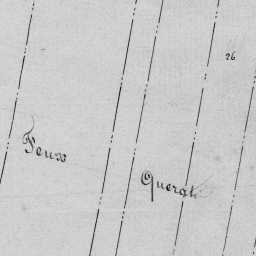 26
Feux
Querat